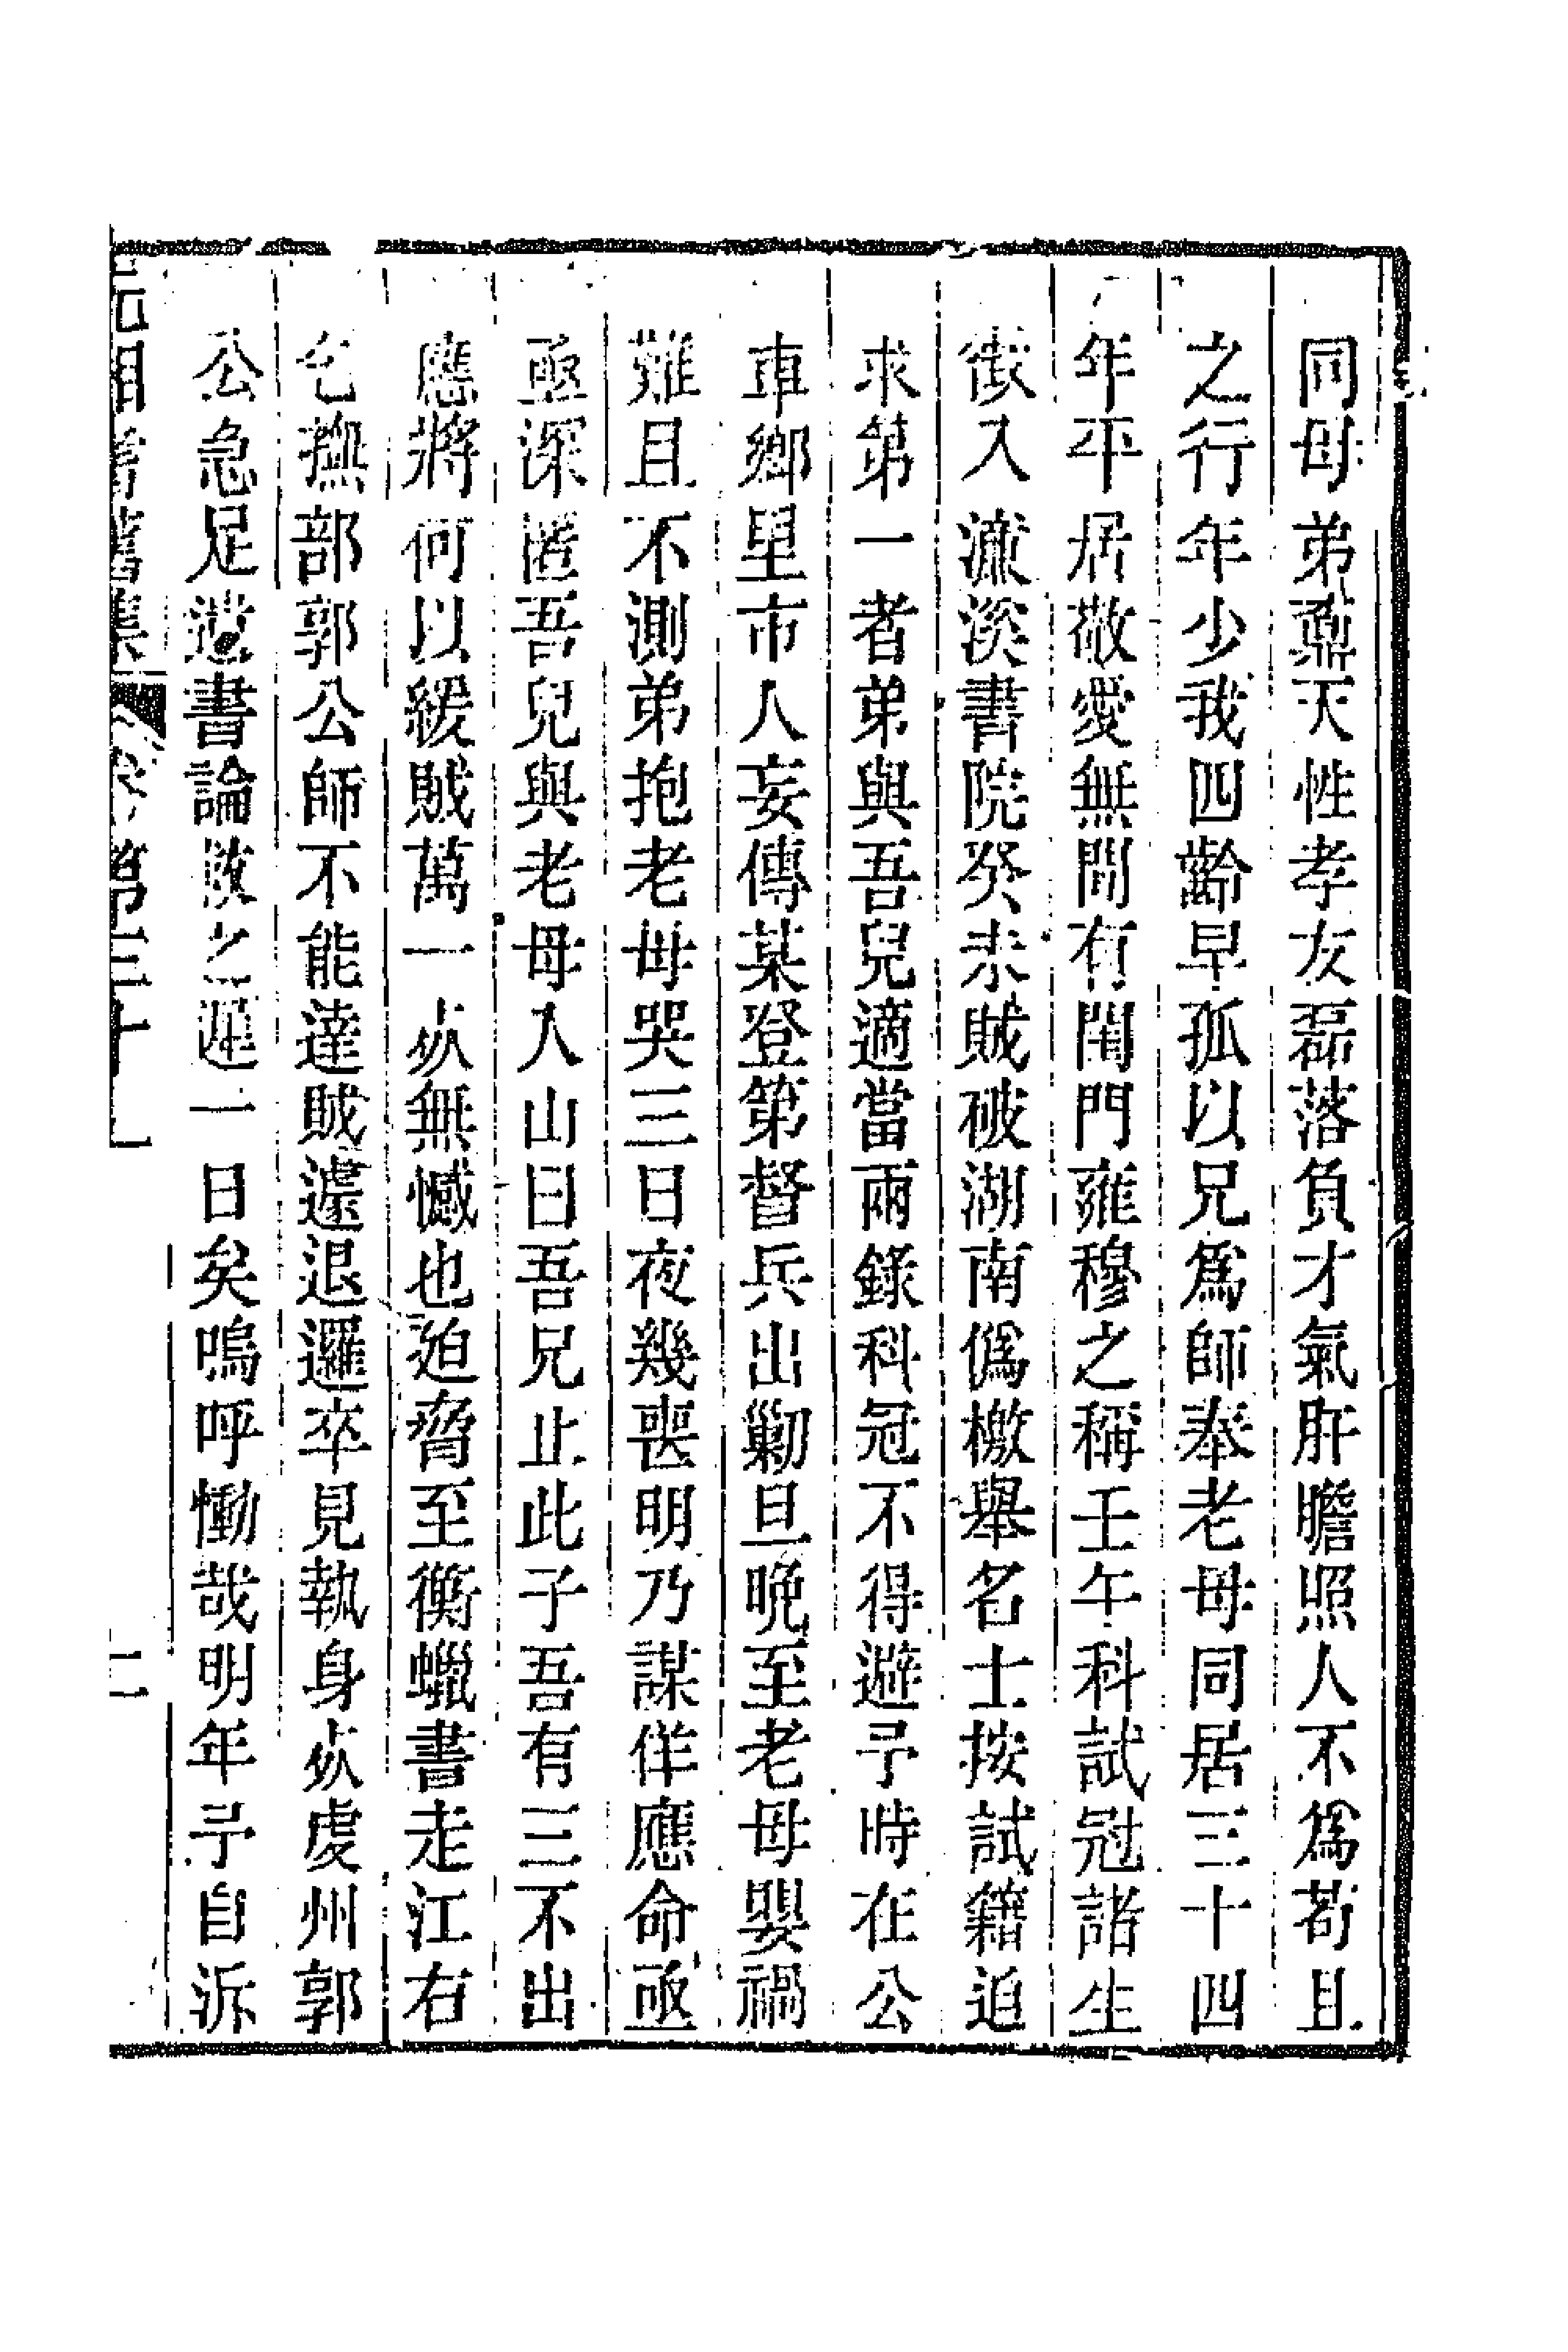 同母弟鼒天性孝友磊落負才氣肝膽照人不爲苟且
之行年少我四齡早孤以兄爲師奉老母同居三十四
年平居敬愛無間有閨門雍穆之稱壬午科試冠諸生
徵入濂溪書院癸未賊破湖南僞檄舉名士按試籍迫
求第一者弟與吾兒適當兩錄科冠不得避予時在公
車鄉里市人妄傳某登第督兵出勦旦晚至老母嬰禍
難且不測弟抱老母哭三日夜幾喪明乃謀佯應命亟
亟深匿吾兒與老母入山曰吾兄止此子吾有三不出
應將何以緩賊萬一死無憾也廹脅至衡蠟書走江右
乞撫部郭公師不能達賊遽退邏卒見執身死虔州郭
公急足遺書論救之遲一日矣嗚呼慟哉明年予自訴
沅湘耆舊集 卷第三十一 二